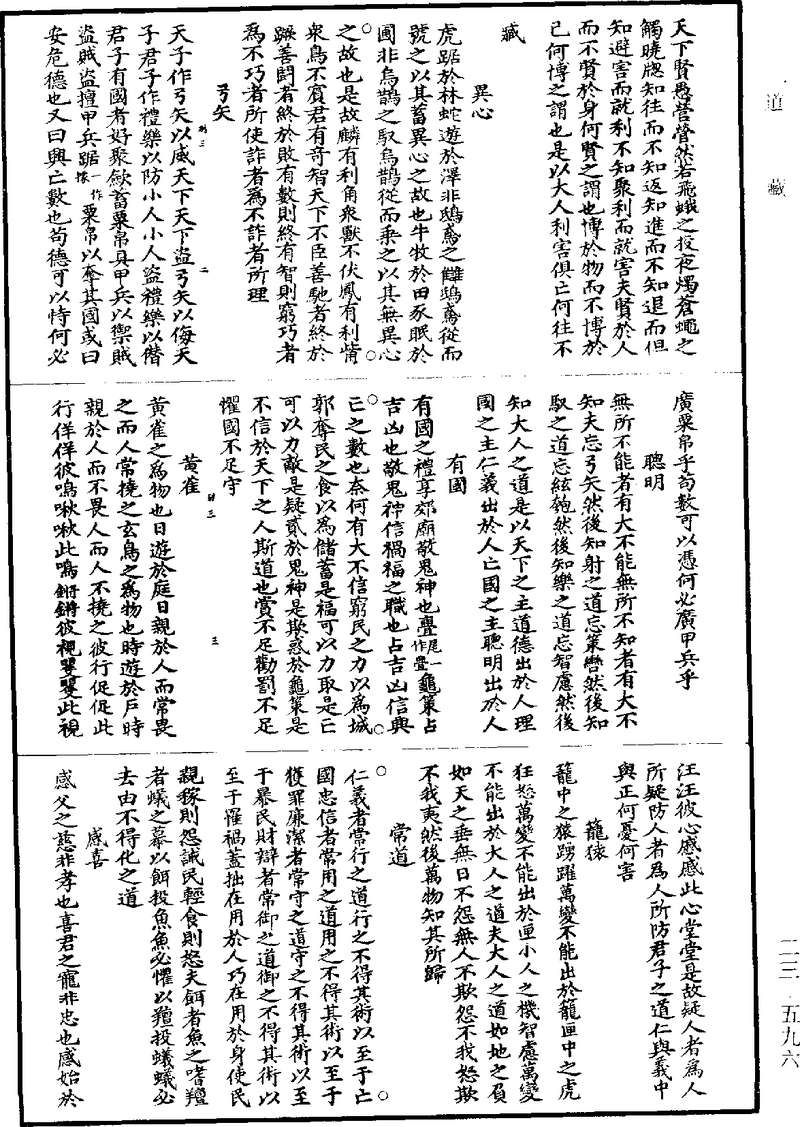 道藏
二三·五九六
天下賢愚營營然若飛蛾之投夜燭蒼蠅之
觸曉牕知往而不知返知進而不知退而但
知避害而就利不知聚利而就害夫賢於人
而不賢於身何賢之謂也博於物而不博於
己何博之謂也是以大人利害俱亡何往不
臧
異心
虎踞於林蛇遊於澤非鴟鳶之讎鴟鳶從而
號之以其蓄異心之故也牛牧於田豕眠於
圃非烏鵲之馭烏鵲從而乘之以其無異心
之故也是故麟有利角衆獸不伏鳳有利觜
衆鳥不賓君有奇智天下不臣善馳者終於
蹶善鬪者終於敗有數則終有智則窮巧者
為不巧者所使詐者為不詐者所理
弓矢
天子作弓矢以威天下天下盜弓矢以侮天
子君子作禮樂以防小人小人盜禮樂以僭
君子有國者好聚歛蓄粟帛具甲兵以禦賊
盜賊盜擅甲兵踞一作據粟帛以奪其國或曰
安危德也又曰興亡數也苟德可以恃何必
廣粟帛乎苟數可以憑何必廣甲兵乎
聰明
無所不能者有大不能無所不知者有大不
知夫忘弓矢然後知射之道忘策轡然後知
馭之道忘絃匏然後知樂之道忘智慮然後
知大人之道是以天下之主道德出於人理
國之主仁義出於人亡國之主聰明出於人
有國
有國之禮享郊廟敬鬼神也亹尾一作舋龜策占
吉凶也敬鬼神信禍福之職也占吉凶信興
亡之數也奈何有大不信窮民之力以為城
郭奪民之食以為儲蓄是福可以力取是亡
可以力敵是疑貳於鬼神是欺惑於龜策是
不信於天下之人斯道也賞不足勸罰不足
懼國不足守
黄雀
黄雀之為物也日遊於庭日親於人而常畏
之而人常撓之玄鳥之為物也時遊於戶時
親於人而不畏人而人不撓之彼行促促此
行佯佯彼鳴啾啾此鳴鏘鏘彼視矍矍此視
汪汪彼心慼慼此心堂堂是故疑人者為人
所疑防人者為人所防君子之道仁與義中
與正何憂何害
籠猿
籠中之猿踴躍萬變不能出於籠匣中之虎
狂怒萬變不能出於匣小人之機智慮萬變
不能出於大人之道夫大人之道如地之負
如天之垂無日不怨無人不欺怨不我怒欺
不我夷然後萬物知其所歸
常道
仁義者常行之道行之不得其術以至于亡
國忠信者常用之道用之不得其術以至于
獲罪廉潔者常守之道守之不得其術以至
于暴民財辯者常御之道御之不得其術以
至于罹禍蓋拙在用於人巧在用於身使民
親稼則怨誡民輕食則怒夫餌者魚之嗜羶
者蟻之慕以餌投魚魚必懼以羶投蟻蟻必
去由不得化之道
感喜
感父之慈非孝也喜君之寵非忠也感始於